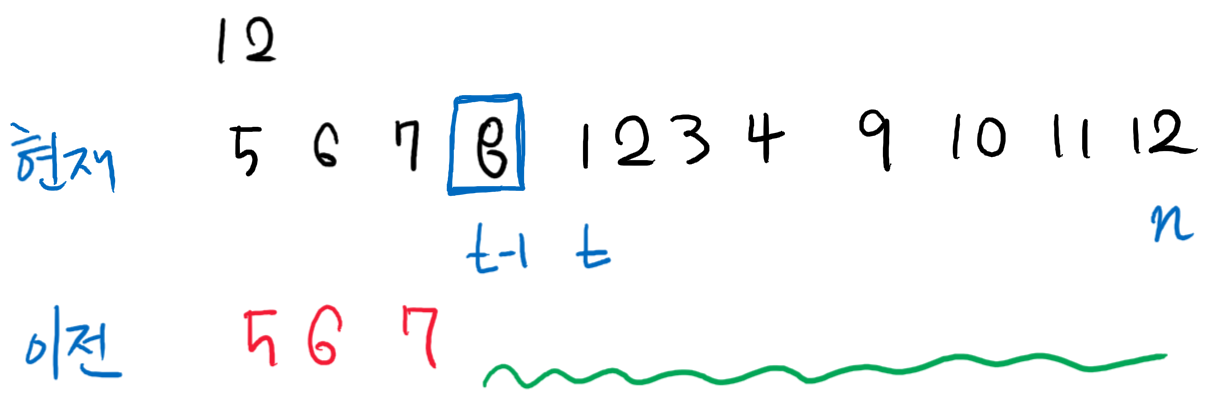 12
현재 5 6 7 8 1 2 3 4 9 10 11 12
t-1 t n
이전 5 6 7